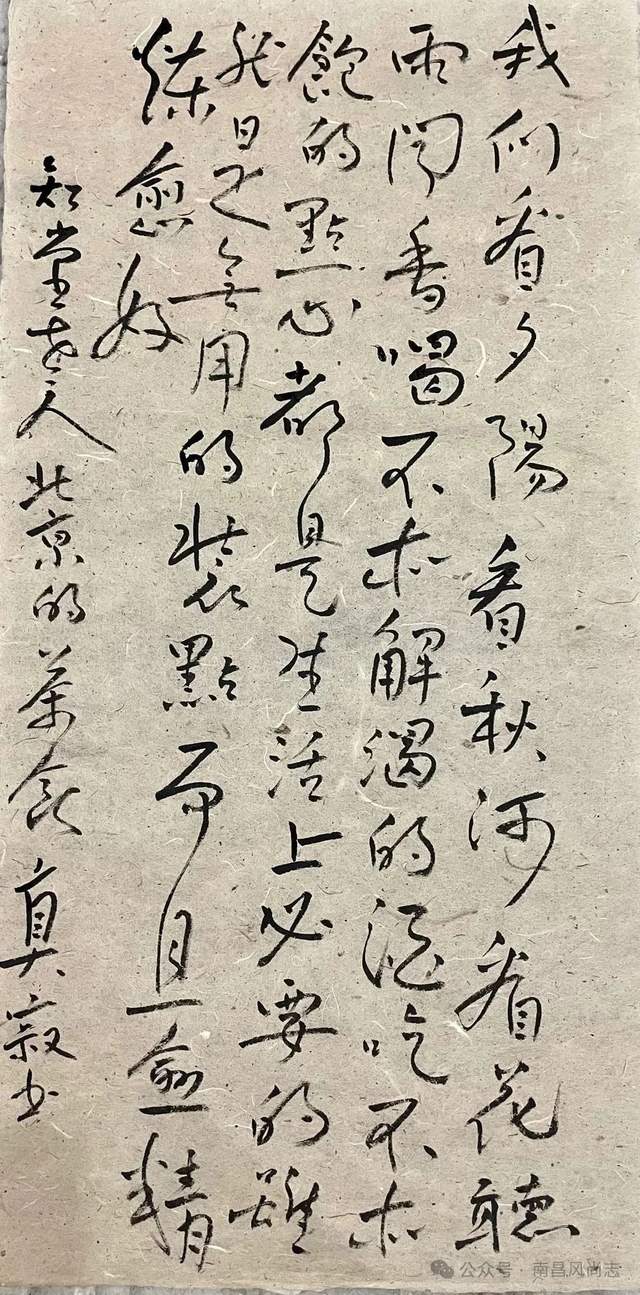 我们看夕陽看秋河看花聽
雨闻香喝不求解渴的酒吃不求
飽的點心都是生活上必要的雖
然是無用的裝點而且愈精
煉愈好
知堂老人北京的茶食 真寂书
公众号 · 南昌风尚志